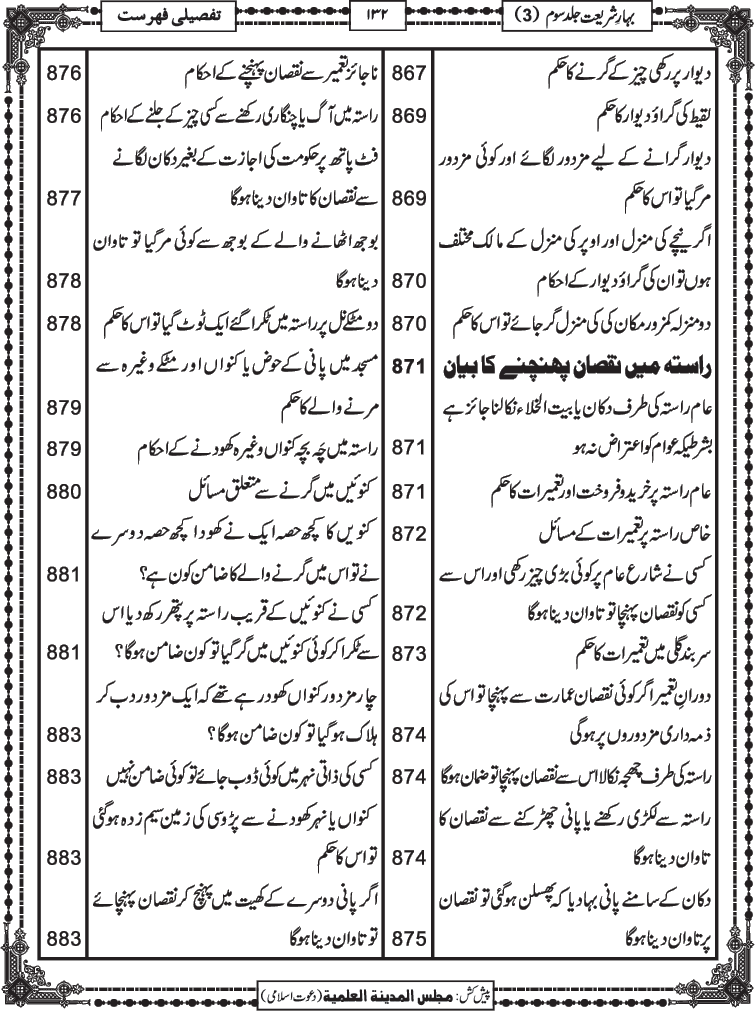 بہارِشریعت جلد سوم (3)
۱۳۲
تفصیلی فہرست
دیوار پر رکھی چیز کے گرنے کا حکم 867
لقیط کی گراؤ دیوار کا حکم 869
دیوار گرانے کے لیے مزدور لگائے اور کوئی مزدور
مرگیا تو اس کا حکم 869
اگر نیچے کی منزل اور اوپر کی منزل کے مالک مختلف
ہوں تو ان کی گراؤ دیوار کے احکام 870
دومنزلہ کمزور مکان کی کی منزل گر جائے تو اس کا حکم 870
راستہ میں نقصان پہنچنے کا بیان 871
عام راستہ کی طرف دکان یا بیت الخلاء نکالنا جائز ہے
بشرطیکہ عوام کو اعتراض نہ ہو 871
عام راستہ پر خرید و فروخت اور تعمیرات کا حکم 871
خاص راستہ پر تعمیرات کے مسائل 872
کسی نے شارع عام پر کوئی بڑی چیز رکھی اور اس سے
کسی کو نقصان پہنچا تو تاوان دینا ہوگا 872
سربند گلی میں تعمیرات کا حکم 873
دورانِ تعمیر اگر کوئی نقصان عمارت سے پہنچا تو اس کی
ذمہ داری مزدوروں پر ہوگی 874
راستہ کی طرف چھجہ نکالا اس سے نقصان پہنچا تو ضمان ہوگا 874
راستہ سے لکڑی رکھنے یا پانی چھڑکنے سے نقصان کا
تاوان دینا ہوگا 874
دکان کے سامنے پانی بہا دیا کہ پھسلن ہوگئی تو نقصان
پر تاوان دینا ہوگا 875
ناجائز تعمیر سے نقصان پہنچنے کے احکام 876
راستہ میں آگ یا چنگاری رکھنے سے کسی چیز کے جلنے کے احکام 876
فٹ پاتھ پر حکومت کی اجازت کے بغیر دکان لگانے
سے نقصان کا تاوان دینا ہوگا 877
بوجھ اٹھانے والے کے بوجھ سے کوئی مرگیا تو تاوان
دینا ہوگا 878
دو مٹکے نل پر راستہ میں ٹکرا گئے ایک ٹوٹ گیا تو اس کا حکم 878
مسجد میں پانی کے حوض یا کنواں اور مٹکے وغیرہ سے
مرنے والے کا حکم 879
راستہ میں چَہ بچہ کنواں وغیرہ کھودنے کے احکام 879
کنوئیں میں گرنے سے متعلق مسائل 880
کنویں کا کچھ حصہ ایک نے کھودا کچھ حصہ دوسرے
نے تو اس میں گرنے والے کا ضامن کون ہے؟ 881
کسی نے کنوئیں کے قریب راستہ پر پتھر رکھ دیا اس
سے ٹکرا کر کوئی کنوئیں میں گر گیا تو کون ضامن ہوگا؟ 881
چار مزدور کنواں کھود رہے تھے کہ ایک مزدور دب کر
ہلاک ہوگیا تو کون ضامن ہوگا؟ 883
کسی کی ذاتی نہر میں کوئی ڈوب جائے تو کوئی ضامن نہیں 883
کنواں یا نہر کھودنے سے پڑوسی کی زمین سیم زدہ ہوگئی
تو اس کا حکم 883
اگر پانی دوسرے کے کھیت میں پہنچ کر نقصان پہنچائے
تو تاوان دینا ہوگا 883
پیش کش: مجلس المدینۃ العلمیۃ (دعوت اسلامی)